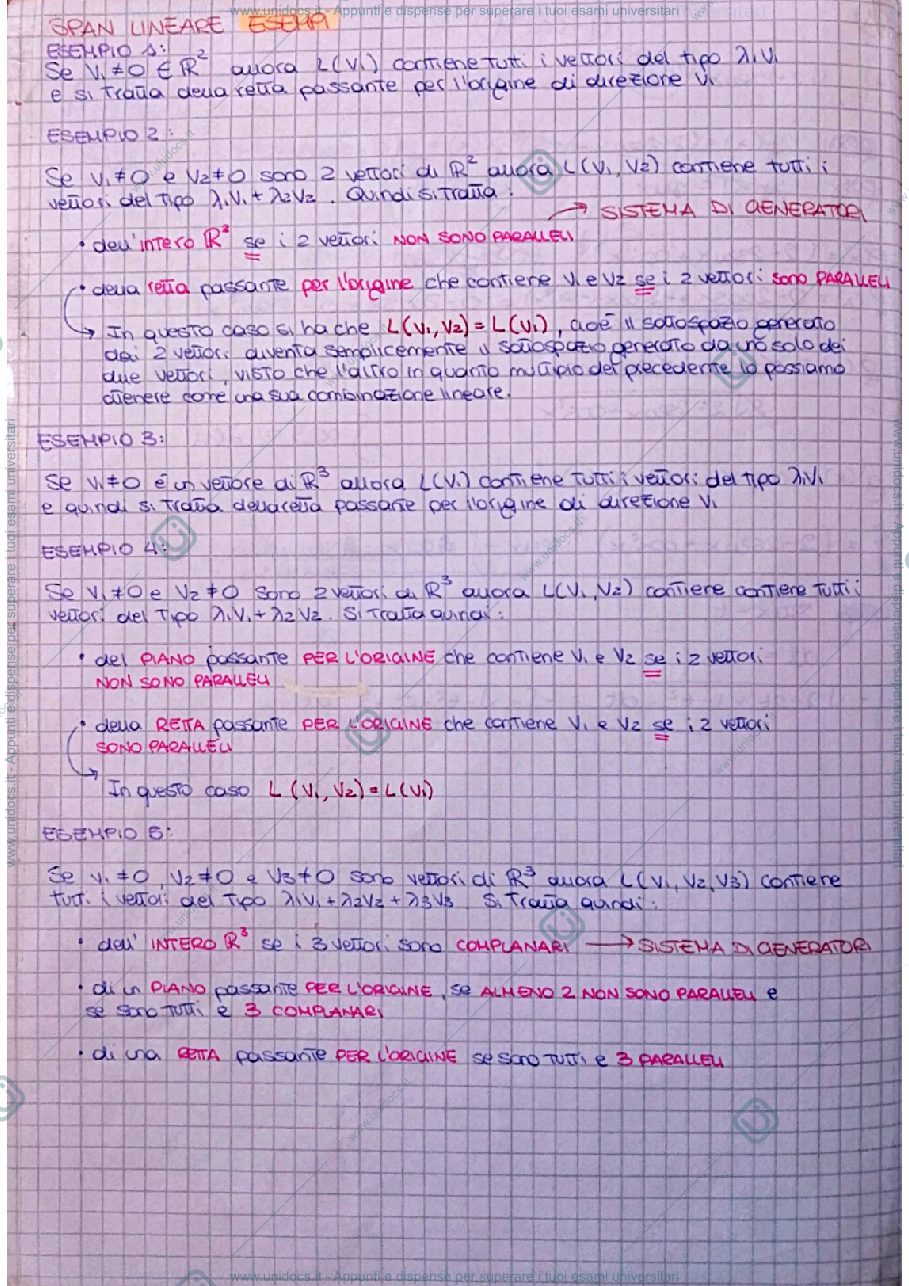 www.unidocs.it - Appunti e dispense per superare i tuoi esami universitari
SPAN LINEARE ESEMPI
ESEMPIO 1:
Se V₁ ≠ 0 ∈ ℝ² allora L(V₁) contiene tutti i vettori del tipo λ₁V₁
e si tratta della retta passante per l'origine di direzione V₁
ESEMPIO 2:
Se V₁ ≠ 0 e V₂ ≠ 0 sono 2 vettori di ℝ² allora L(V₁, V₂) contiene tutti i
vettori del tipo λ₁V₁ + λ₂V₂. Quindi si tratta:
→ SISTEMA DI GENERATORI
• dell'intero ℝ² se i 2 vettori NON SONO PARALLELI
• della retta passante per l'origine che contiene V₁ e V₂ se i 2 vettori sono PARALLELI
→ In questo caso si ha che L(V₁, V₂) = L(V₁), cioè il sottospazio generato
dai 2 vettori diventa semplicemente il sottospazio generato da uno solo dei
due vettori, visto che l'altro in quanto multiplo del precedente lo possiamo
ottenere come una sua combinazione lineare.
ESEMPIO 3:
Se V₁ ≠ 0 è un vettore di ℝ³ allora L(V₁) contiene tutti i vettori del tipo λ₁V₁
e quindi si tratta della retta passante per l'origine di direzione V₁
ESEMPIO 4:
Se V₁ ≠ 0 e V₂ ≠ 0 sono 2 vettori di ℝ³ allora L(V₁, V₂) contiene contiene tutti i
vettori del tipo λ₁V₁ + λ₂V₂. Si tratta quindi:
• del PIANO passante PER L'ORIGINE che contiene V₁ e V₂ se i 2 vettori
NON SONO PARALLELI
• della RETTA passante PER L'ORIGINE che contiene V₁ e V₂ se i 2 vettori
SONO PARALLELI
→ In questo caso L(V₁, V₂) = L(V₁)
ESEMPIO 5:
Se V₁ ≠ 0, V₂ ≠ 0 e V₃ ≠ 0 sono vettori di ℝ³ allora L(V₁, V₂, V₃) contiene
tutti i vettori del tipo λ₁V₁ + λ₂V₂ + λ₃V₃. Si tratta quindi:
• dell'INTERO ℝ³ se i 3 vettori sono COMPLANARI → SISTEMA DI GENERATORI
• di un PIANO passante PER L'ORIGINE, se ALMENO 2 NON SONO PARALLELI e
se sono tutti e 3 COMPLANARI
• di una RETTA passante PER L'ORIGINE se sono tutti e 3 PARALLELI
www.unidocs.it - Appunti e dispense per superare i tuoi esami universitari